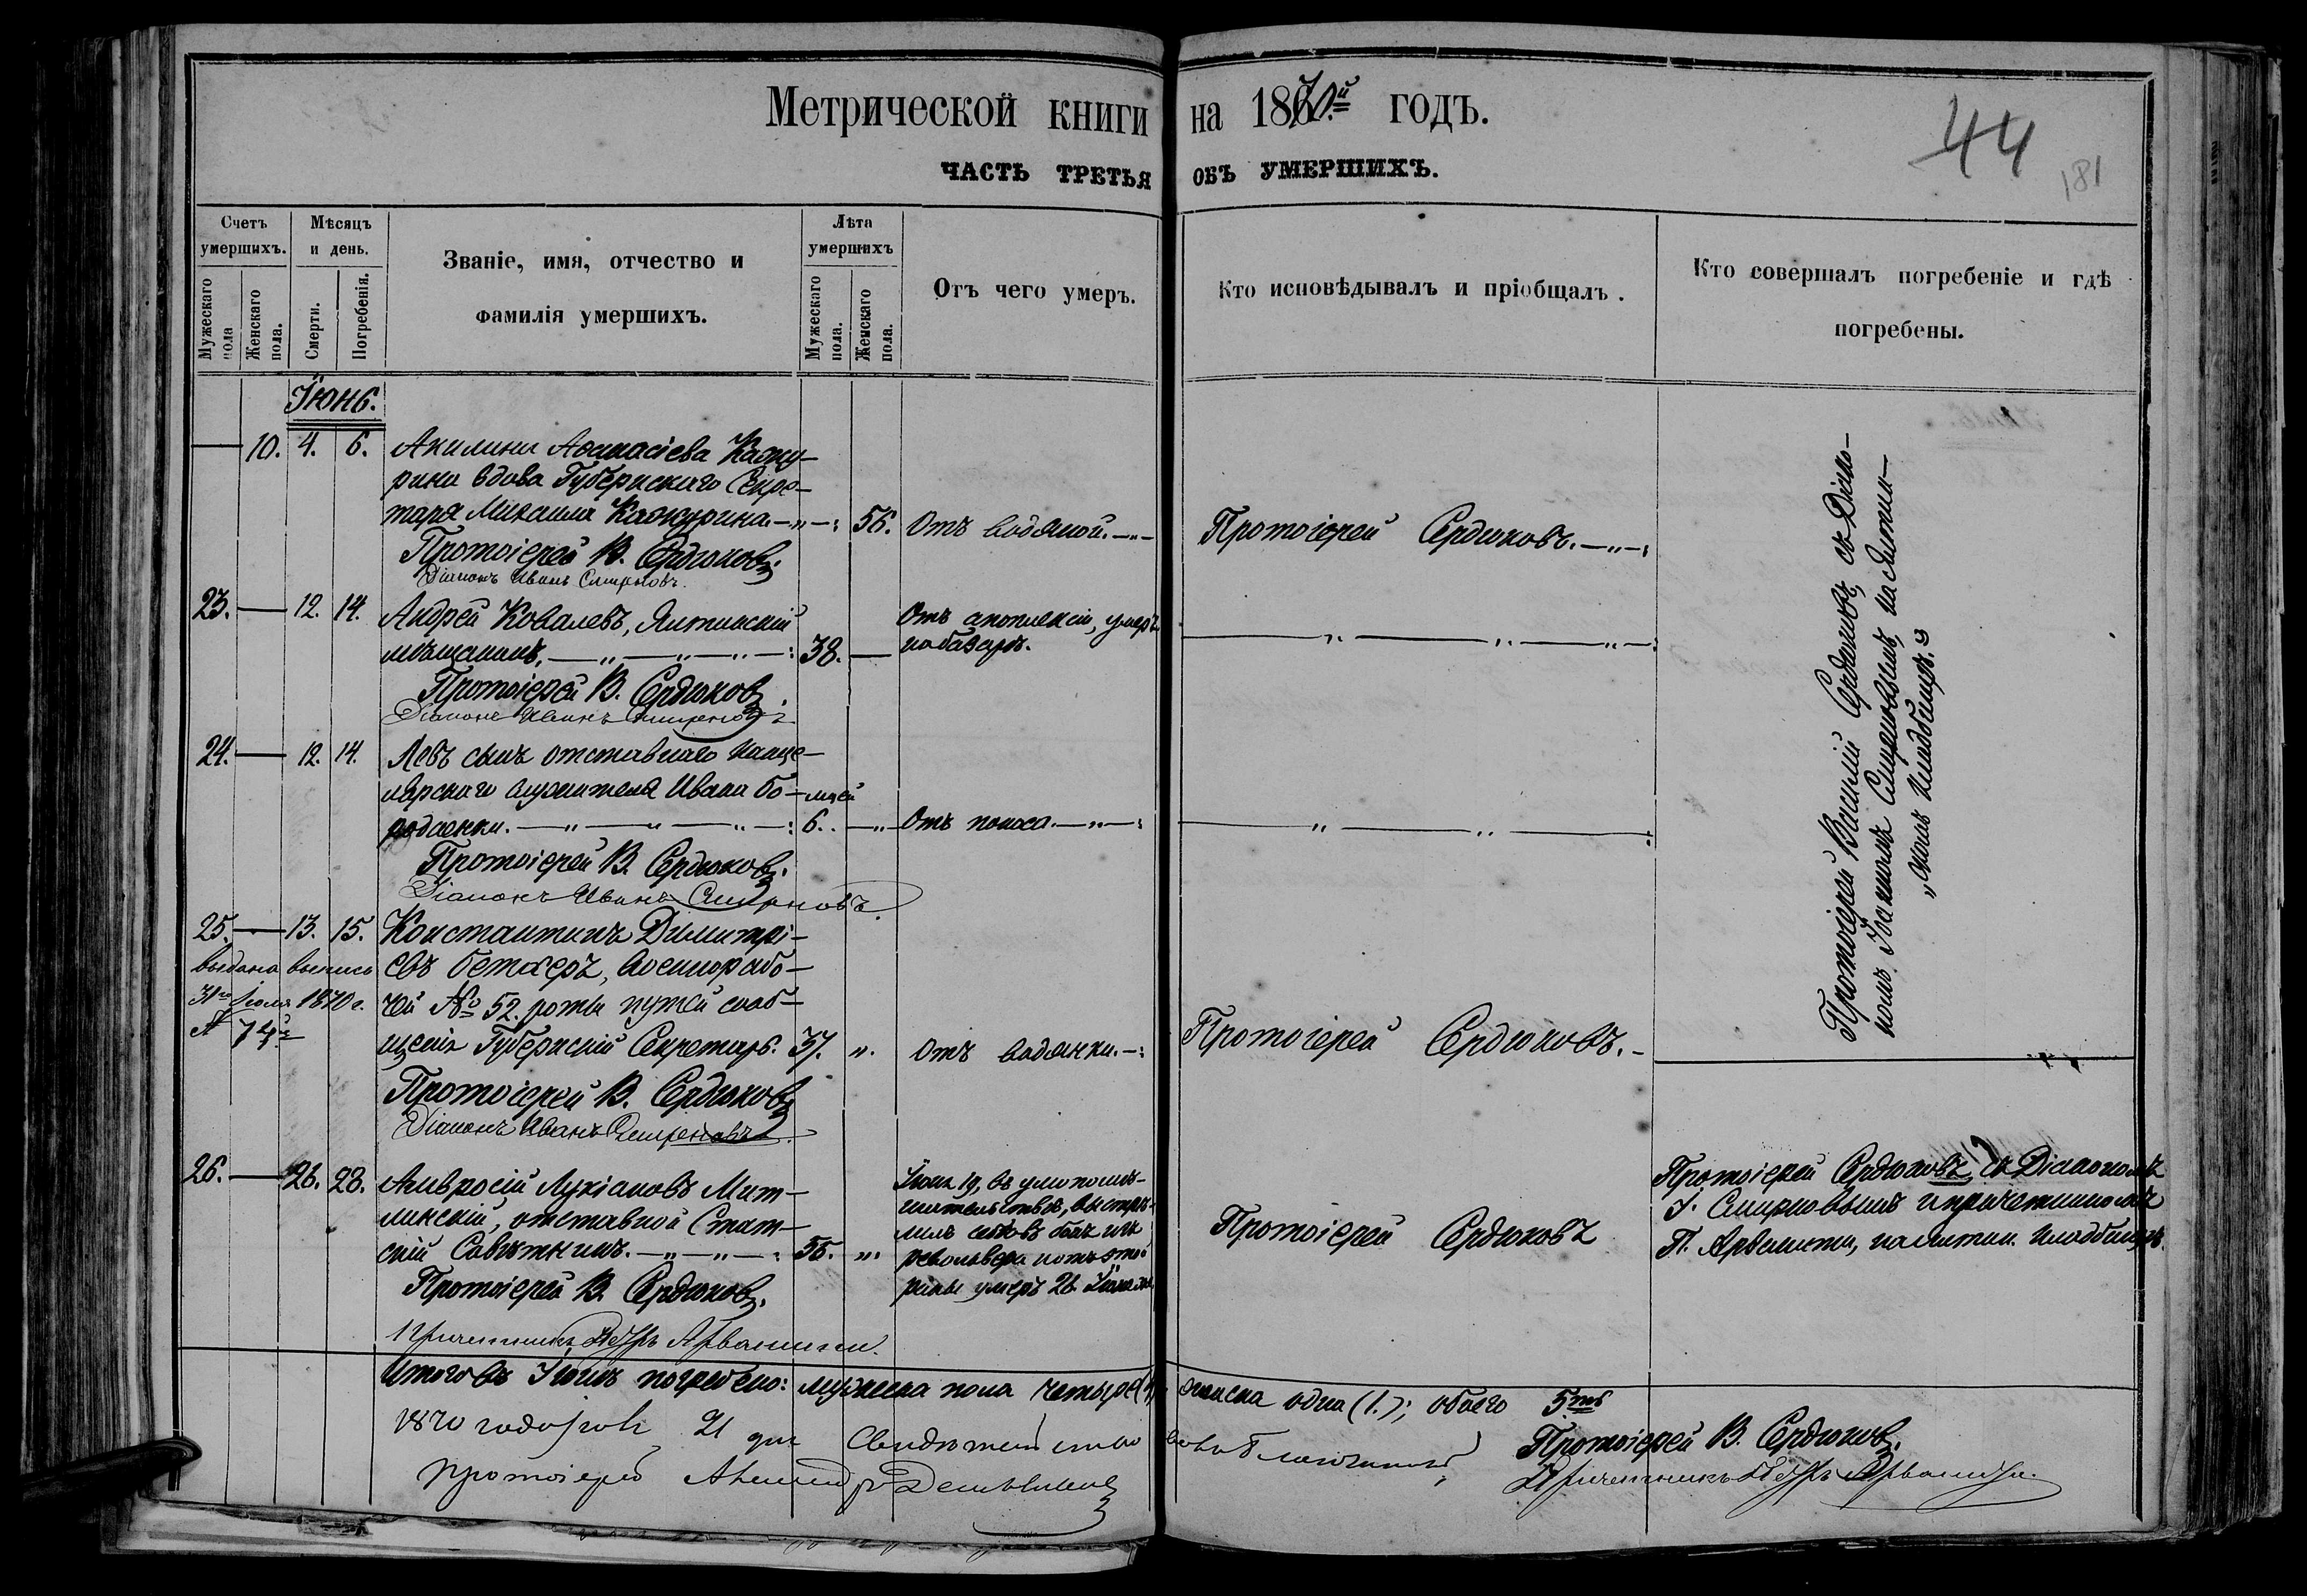 Метрической книги на 1870й годъ.
44
181
ЧАСТЬ ТРЕТЬЯ ОБЪ УМЕРШИХЪ.
Счетъ умершихъ.
Мужескаго пола
Женскаго пола.
Мѣсяцъ и день.
Смерти.
Погребенія.
Званіе, имя, отчество и
фамилія умершихъ.
Лѣта умершихъ
Мужескаго пола.
Женскаго пола.
Отъ чего умеръ.
Кто исповѣдывалъ и пріобщалъ.
Кто совершалъ погребеніе и гдѣ
погребены.
Іюнь.
10. 4. 6. Акилина Аѳанасіева Кажу-
рина вдова Губернскаго Секре-
таря Михаила Кажурина. 56. Отъ водяной. Протоіерей Сердюковъ.
Протоіерей В. Сердюковъ.
Діаконъ Иванъ Смирновъ.
23. 12. 14. Андрей Ковалевъ, Ялтинскій Отъ апоплексіи, умеръ
мѣщанинъ, 38. на базарѣ.
Протоіерей В. Сердюковъ.
Діаконъ Иванъ Смирновъ
24. 12. 14. Левъ сынъ отставнаго канце-
лярскаго служителя Ивана Бо- мцей
родаенки. 6. Отъ поноса.
Протоіерей В. Сердюковъ.
Діаконъ Иванъ Смирновъ.
25. 13. 15. Константинъ Димитрі-
выдана выпись евъ Бетхеръ, военнорабо-
31го Іюля 1870 г. чей № 52 роты путей сооб-
щенія Губернскій Секретарь. 37. Отъ водянки. Протоіерей Сердюковъ.
Протоіерей В. Сердюковъ
Діаконъ Иванъ Смирновъ
Протоіерей Василій Сердюковъ, съ Діако-
номъ Іоанномъ Смирновымъ, на Ялтин-
скомъ кладбищѣ.
26. 26. 28. Амвросій Лукіановъ Мит-
линскій, отставной Стат-
скій Совѣтникъ. 55.
Протоіерей В. Сердюковъ.
Причетникъ Петръ Арванити.
Іюня 19, въ умопомѣ-
шательствѣ, выстрѣ-
лилъ себѣ въ бокъ изъ
револьвера и отъ этой
раны умеръ 26 Іюня
Протоіерей Сердюковъ
Протоіерей Сердюковъ, съ Діакономъ
І. Смирновымъ и причетникомъ
П. Арванити, на Ялтин. кладбищѣ.
Итого въ Іюнѣ погребено: мужеска пола четыре (4), женска одна (1.); обоего 5ть
Протоіерей В. Сердюковъ.
Причетникъ Петръ Арванити.
1870 года 21 дня
Протоіерей